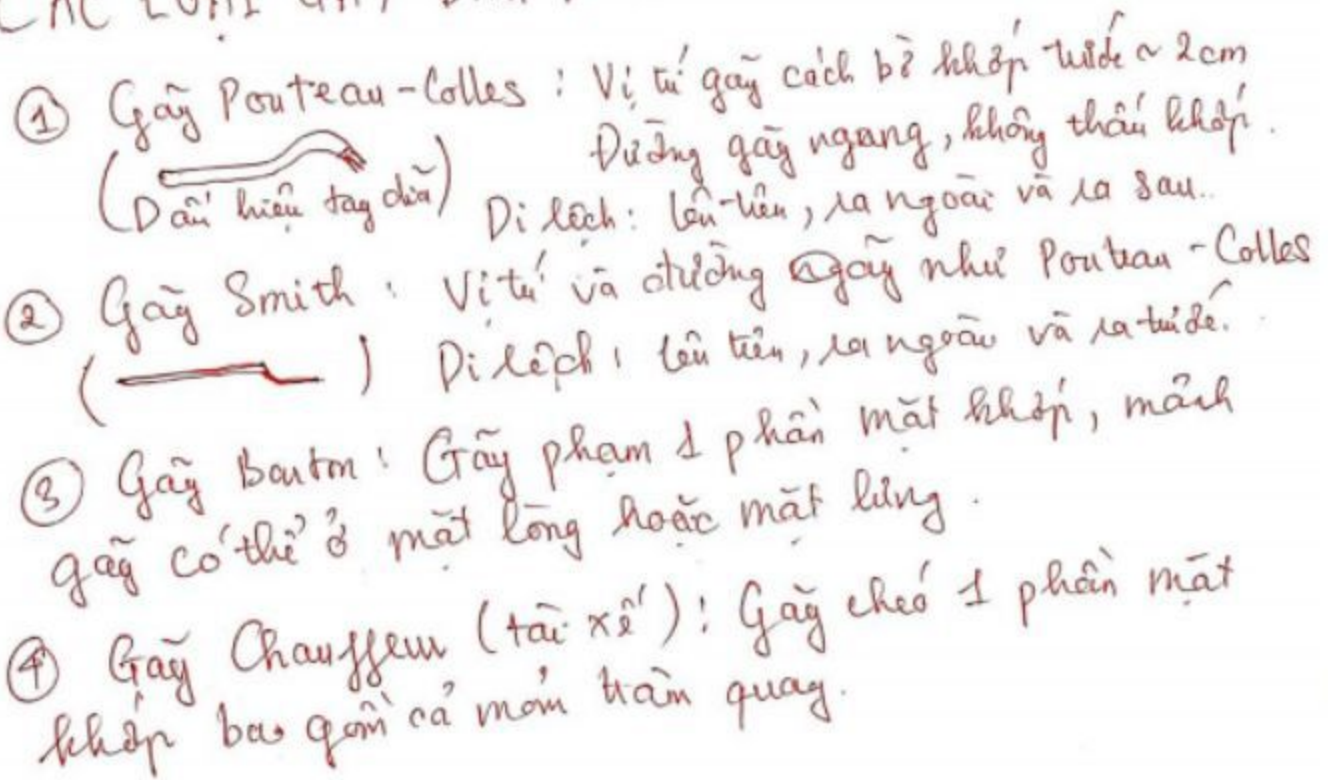 CÁC LOẠI GÃY
① Gãy Pouteau-Colles : Vị trí gãy cách bờ khớp trước ~ 2cm
Đường gãy ngang, không thấu khớp.
(Dấu hiệu tay dĩa) Di lệch: lên-trên, ra ngoài và ra sau..
② Gãy Smith : Vị trí và đường gãy như Pouteau-Colles
( ) Di lệch : lên trên, ra ngoài và ra trước.
③ Gãy Barton : Gãy phạm 1 phần mặt khớp, mảnh
gãy có thể ở mặt lòng hoặc mặt lưng.
④ Gãy Chauffeur (tài xế) : Gãy chéo 1 phần mặt
khớp bao gồm cả mỏm trâm quay.